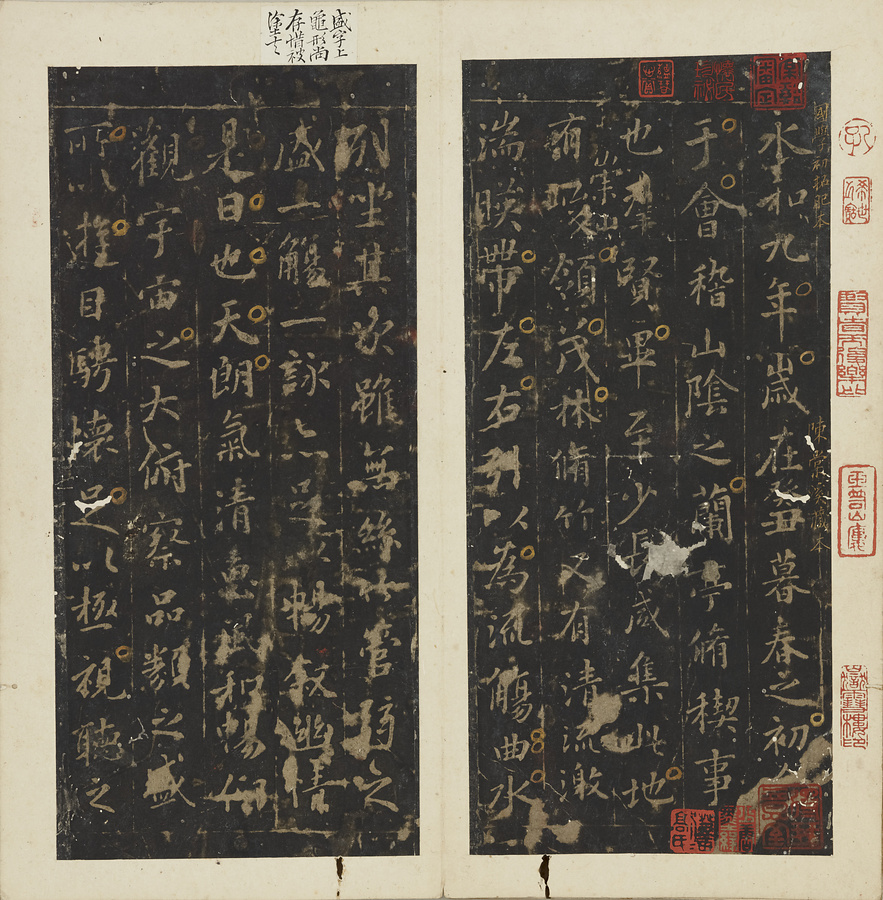 永和九年歲在癸丑暮春之初
于會稽山陰之蘭亭脩稧事
也羣賢畢至少長咸集此地
有崇山峻領茂林脩竹又有清流激
湍暎帶左右引以為流觴曲水
盛字上
龜形尚
存惜被
列坐其次雖無絲竹管弦之
盛一觴一詠亦足以暢敘幽情
是日也天朗氣清惠風和暢仰
觀宇宙之大俯察品類之盛
所以遊目騁懷足以極視聽之